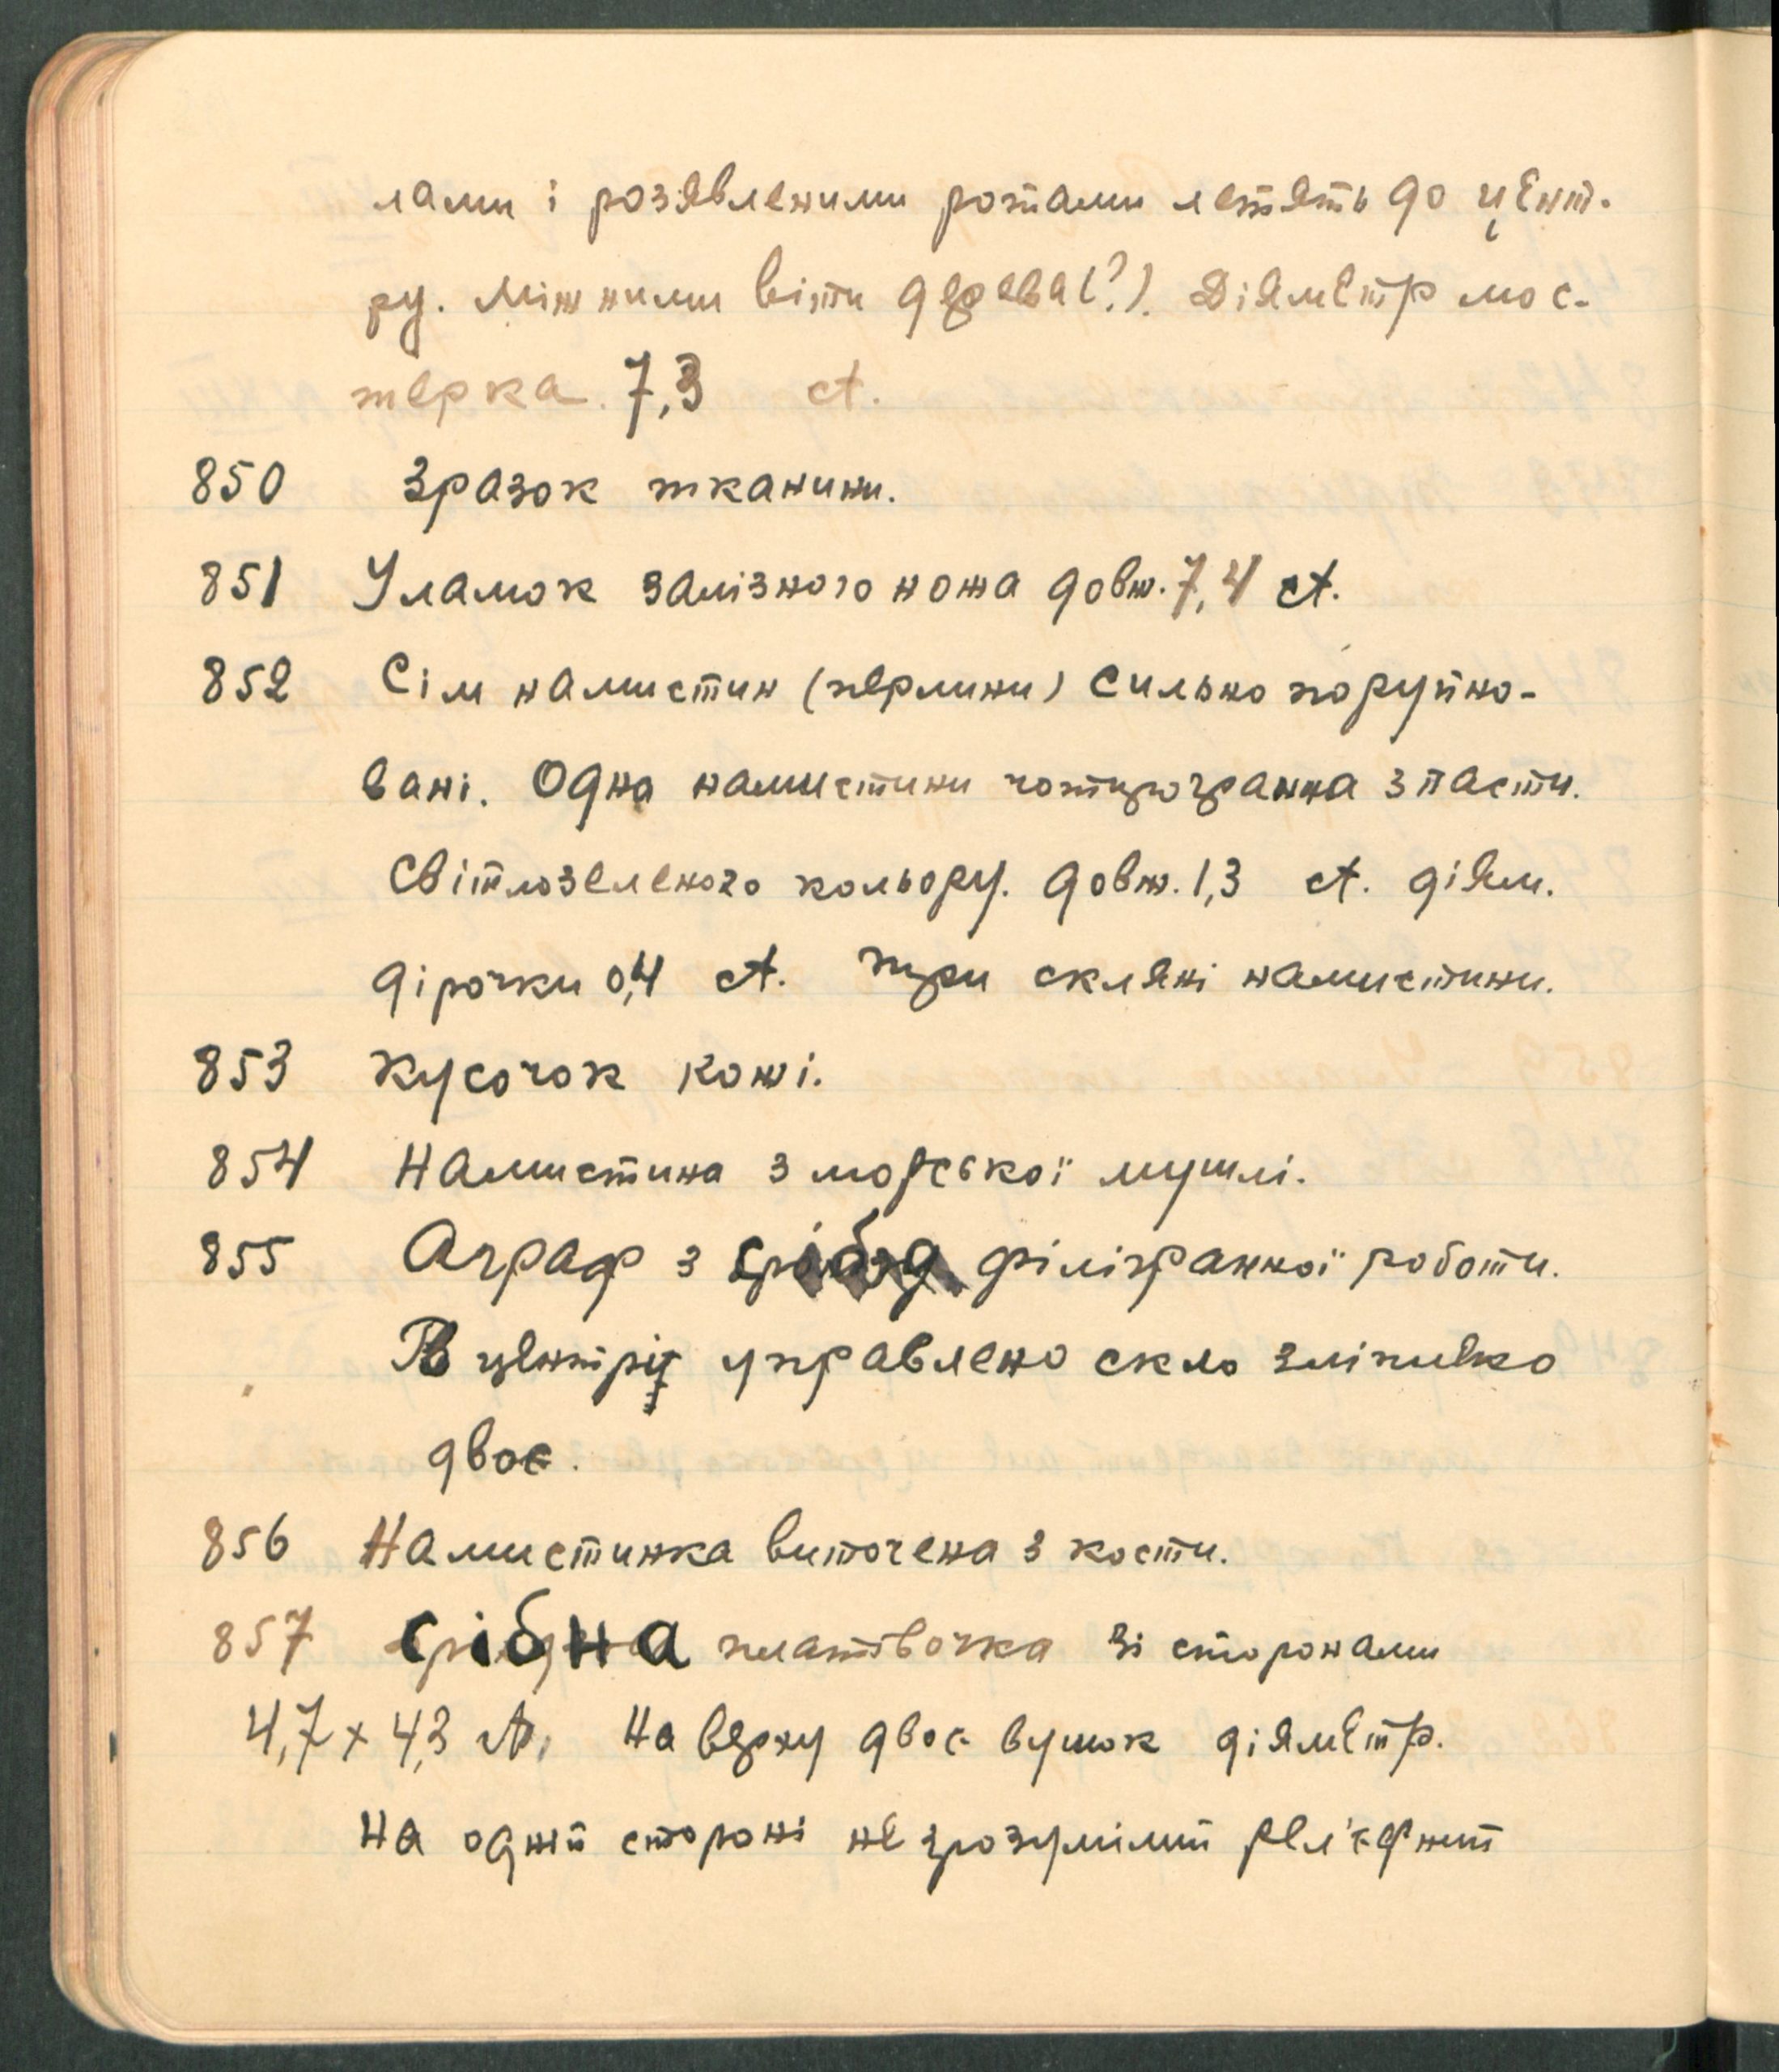 лами і розявленими ротами летять до цент-
ру. Між ними віти дерева(?). Діяметр мос-
терка. 7,3 ct.
850 Зразок тканини.
851 Уламок залізного ножа довж. 7,4 ct.
852 Сім намистин (перлини) сильно поруйно-
вані. Одна намистини чотирогранна з пасти.
світлозеленого кольору. довж. 1,3 ct. діям.
дірочки 0,4 ct. три скляні намистини.
853 Кусочок кожі.
854 Намистина з морської мушлі.
855 Аграф з срібла філігранної роботи.
В центрі управлено скло
двоє.
856 Намистинка виточена з кости.
857 срібна платівочка зі сторонами
4,7 x 4,3 ct. На верху двоє вушок діяметр.
На одній стороні не зрозумілий рел'єфний